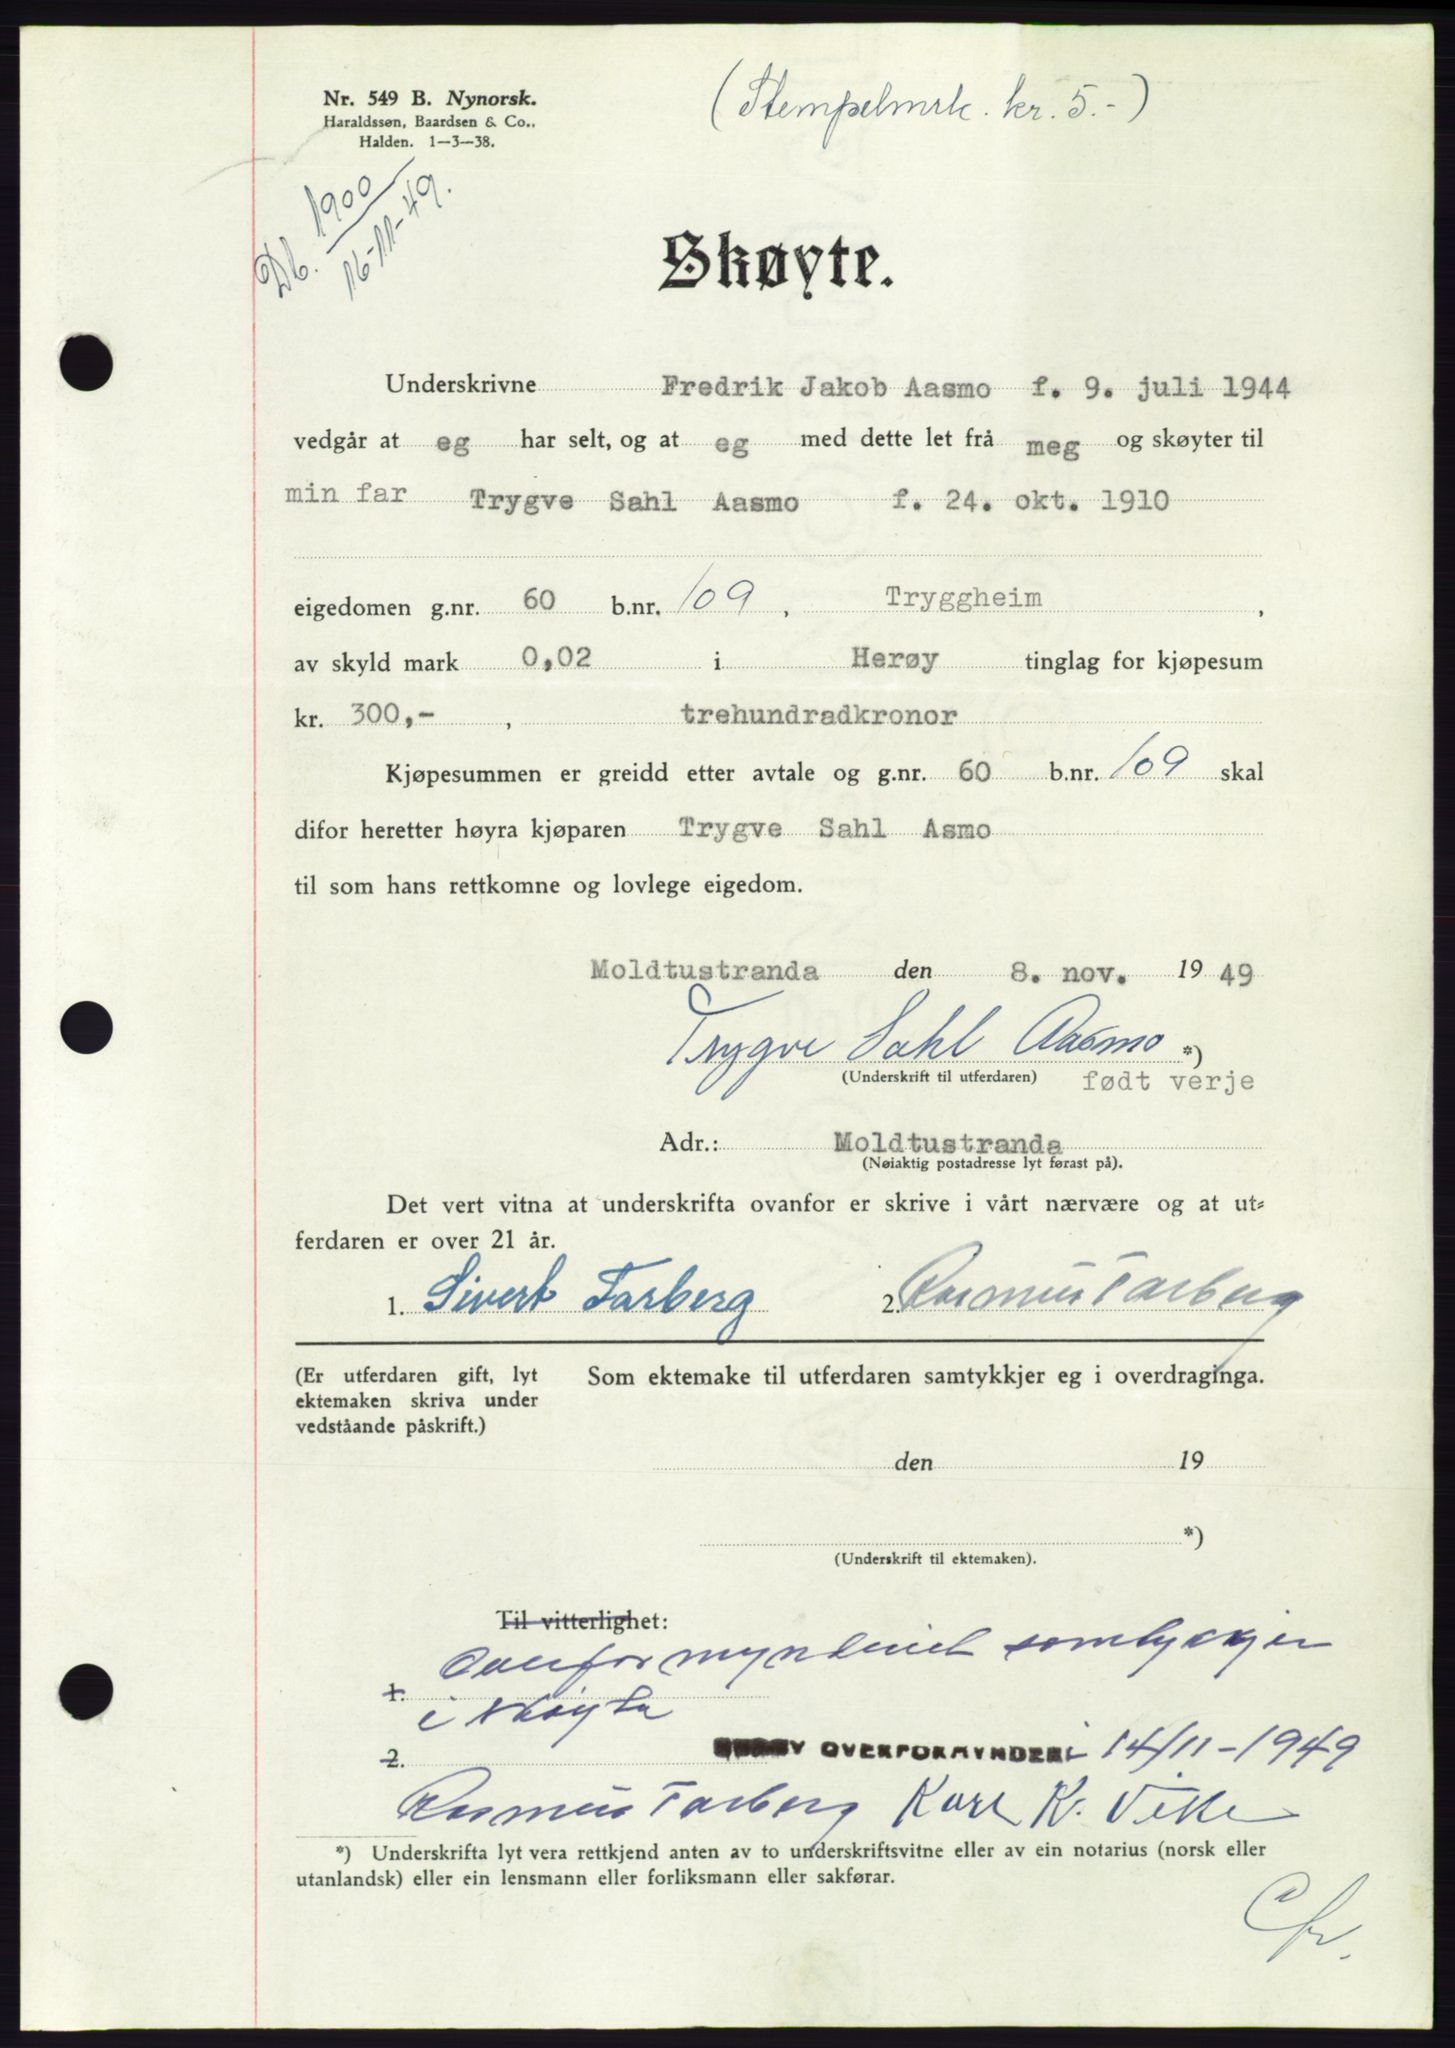 Nr. 549 B. Nynorsk.
Haraldssøn, Baardsen & Co..
Halden. 1—3—38.
(Stempelmrk. kr. 5.-)
Db. 1900
16-11-49.
Skøyte.
Underskrivne Fredrik Jakob Aasmo f. 9. juli 1944
vedgår at eg har selt, og at eg med dette let frå meg og skøyter til
min far Trygve Sahl Aasmo f. 24. okt. 1910
eigedomen g.nr. 60 b.nr. 109, Tryggheim,
av skyld mark 0,02 i Herøy tinglag for kjøpesum
kr. 300,- , trehundradkronor
Kjøpesummen er greidd etter avtale og g.nr. 60 b.nr. 109 skal
difor heretter høyra kjøparen Trygve Sahl Asmo
til som hans rettkomne og lovlege eigedom.
Moldtustranda den 8. nov. 1949
Trygve Sahl Aasmo *)
(Underskrift til utferdaren) født verje
Adr.: Moldtustranda
(Nøiaktig postadresse lyt førast på).
Det vert vitna at underskrifta ovanfor er skrive i vårt nærvære og at ut=
ferdaren er over 21 år.
1. Sivert Tarberg 2. Rasmus Tarberg
(Er utferdaren gift, lyt
ektemaken skriva under
vedståande påskrift.)
Som ektemake til utferdaren samtykkjer eg i overdraginga.
den 19
*)
(Underskrift til ektemaken).
Til vitterlighet:
1. Overformynderiet samtykkjer
i skøyta
2. HERØY OVERFORMYNDERI 14/11-1949
Rasmus Tarberg Karl K.
*) Underskrifta lyt vera rettkjend anten av to underskriftsvitne eller av ein notarius (norsk eller
utanlandsk) eller ein lensmann eller forliksmann eller sakførar.